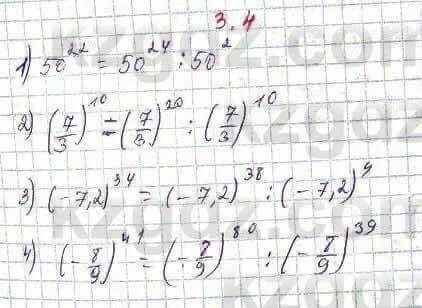 3.4
1) 50^22 = 50^24 : 50^2
2) (7/3)^10 = (7/3)^20 : (7/3)^10
3) (-7,2)^34 = (-7,2)^38 : (-7,2)^4
4) (-8/9)^41 = (-8/9)^80 : (-8/9)^39